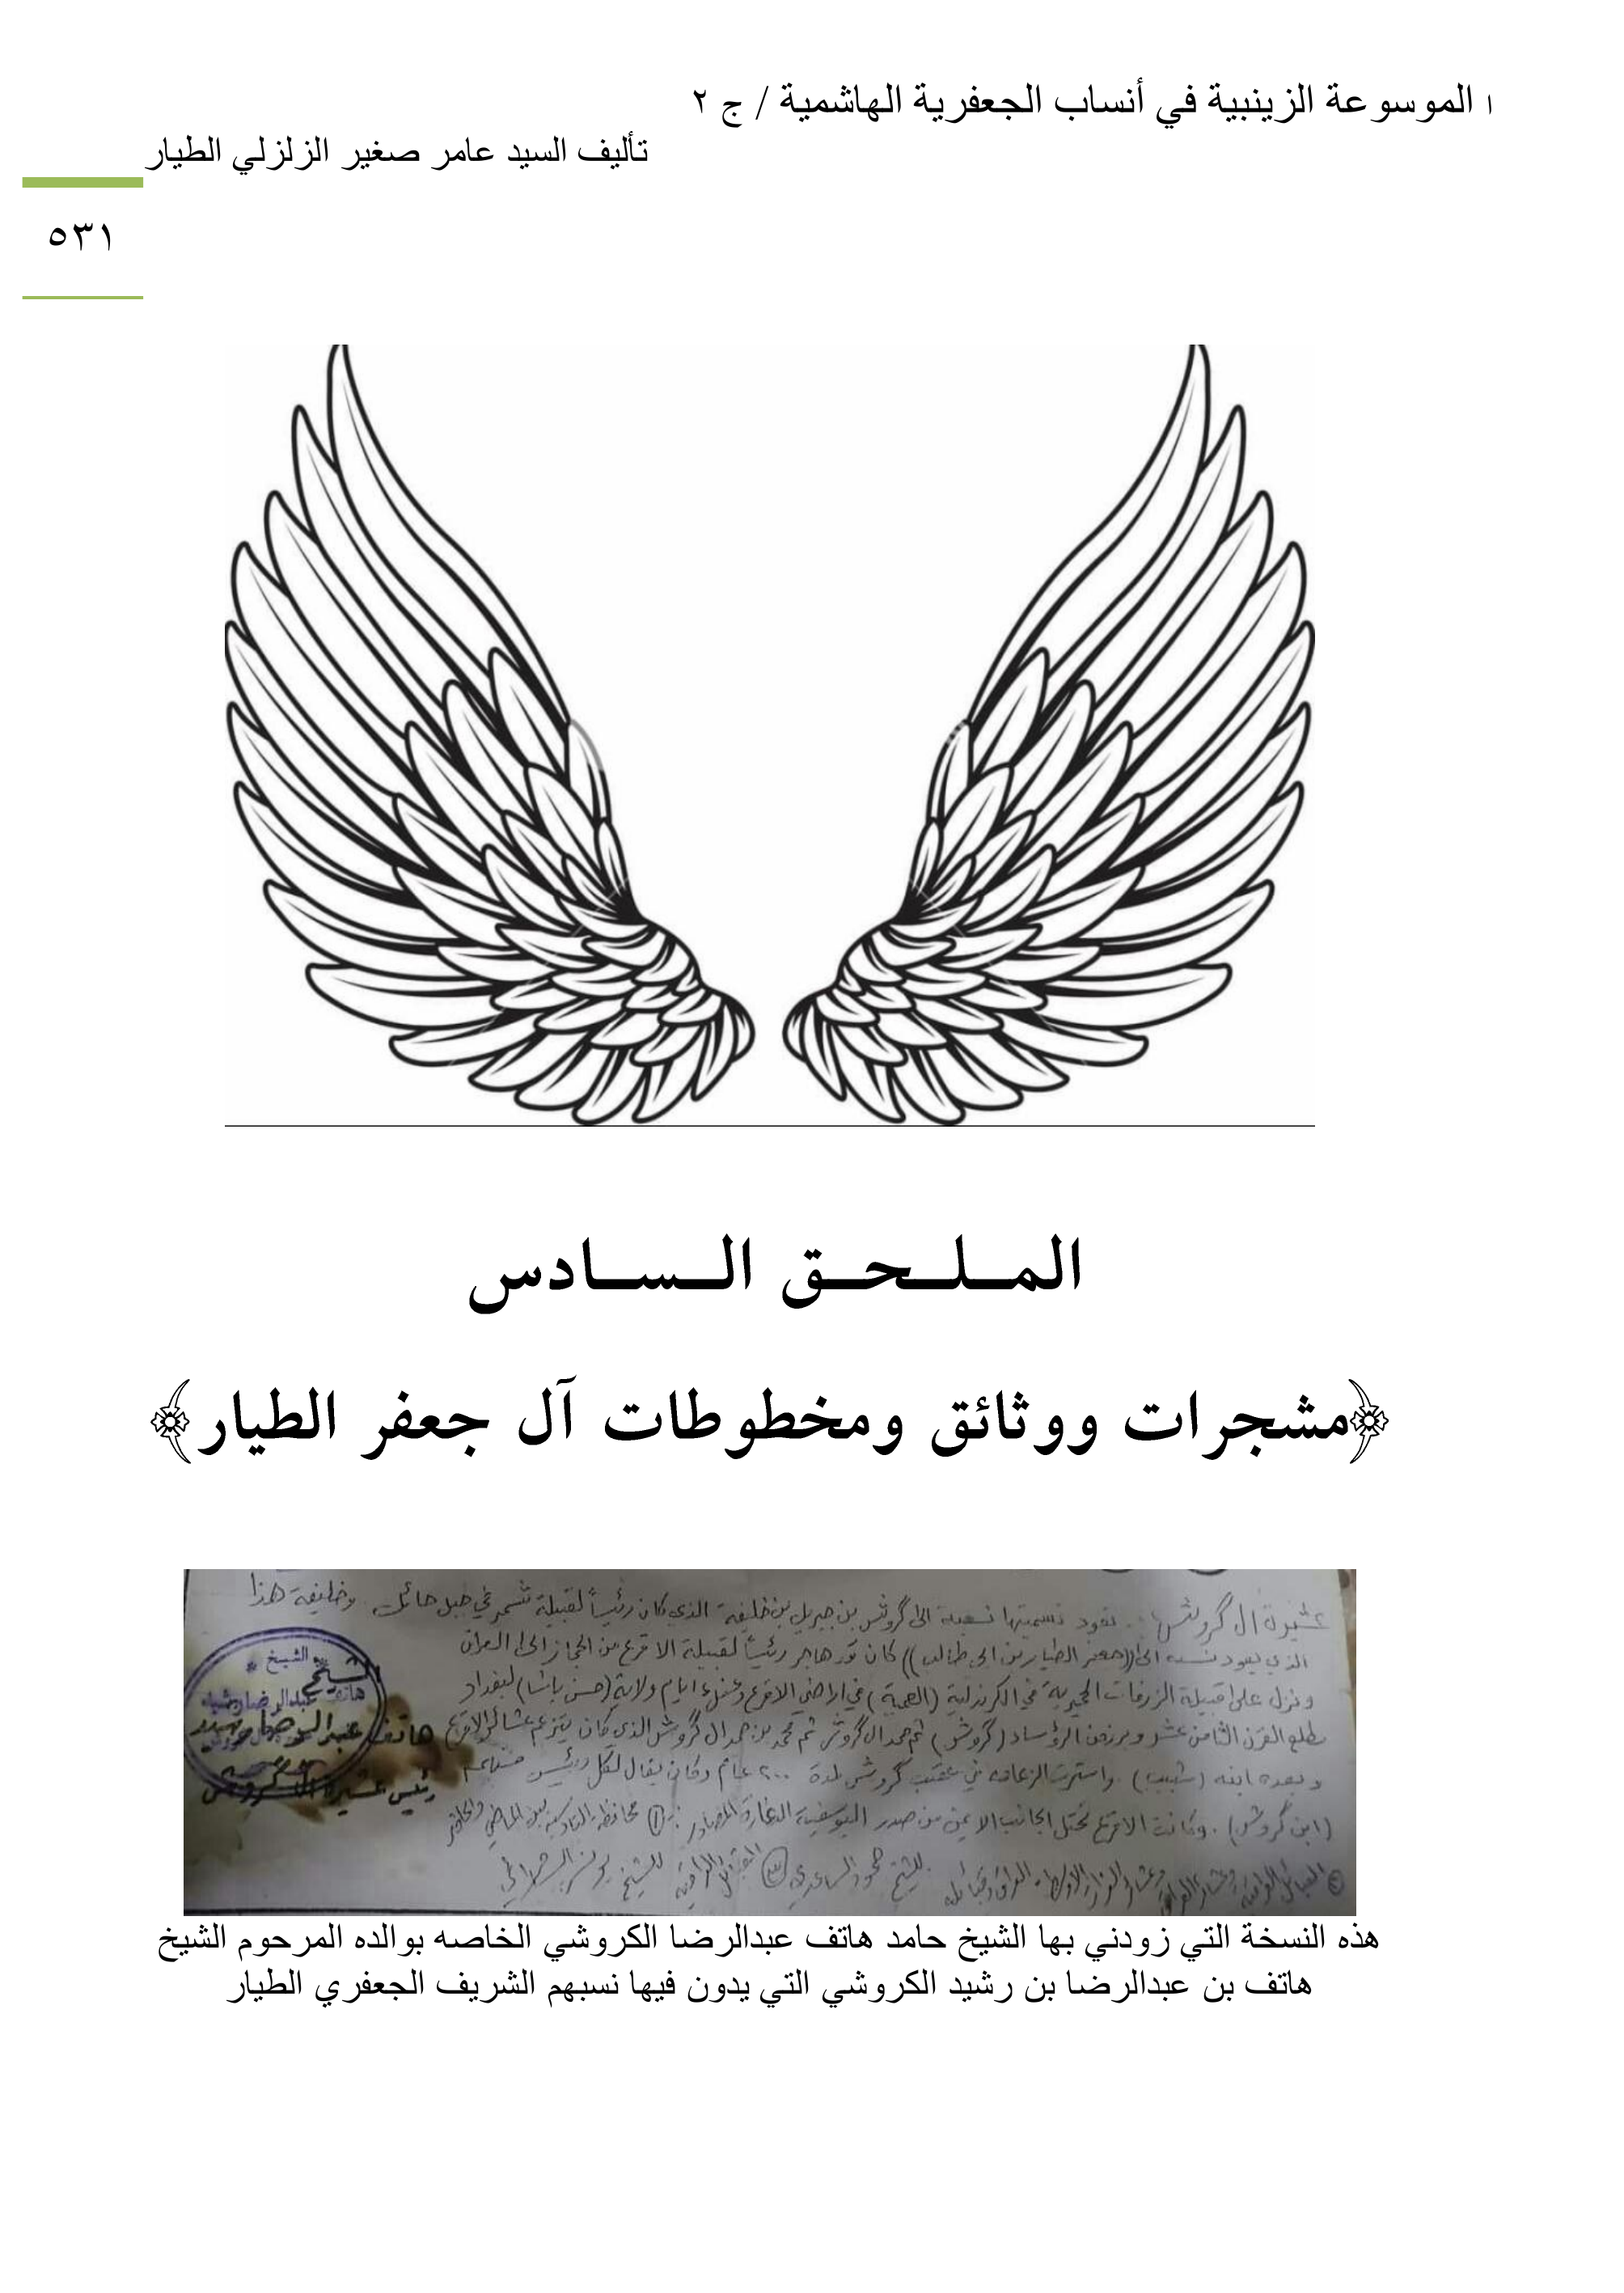 ا الموسوعة الزينبية في أنساب الجعفرية الهاشمية / ج ٢
تأليف السيد عامر صغير الزلزلي الطيار
٥٣١
الملحق السادس
﴿مشجرات ووثائق ومخطوطات آل جعفر الطيار﴾
عشيرة ال گروش: تعود تسميتها نسبة الى گروش بن جبريل بن خليفة الذي كان رئيساً لقبيلة شمر في جبل حائل وخليفة هذا
الذي يعود نسبه الى ((جعفر الطيار بن ابي طالب)) كان قد هاجر رئيساً لقبيلة الاقرع من الحجاز الى العراق
ونزل على قبيلة الزرفات الحميرية في اراضي الاقرع وعفك ايام ولاية (حسن باشا) لبغداد
مطلع القرن الثامن عشر وبرز من الرؤساء (گروش) ثم حمد ال گروش ثم محمد بن حمد ال گروش الذي كان يتزعم عشائر الاقرع
وبعده ابنه (شبيب) واستمرت الزعامة في عقب گروش لمدة ٢٠٠ عام وكان يقال لكل رئيس منهم
(ابن گروش). وكانت الاقرع تحتل الجانب الايمن من صدر اليوسفية الدغارة المصادر: ① محافظة القادسية بين الماضي والحاضر
للشيخ حمود الساعدي القبائل العراقية للشيخ يونس السامرائي
الشيخ
هاتف عبدالرضا رشيد
رئيس عشيرة ال گروش
هذه النسخة التي زودني بها الشيخ حامد هاتف عبدالرضا الكروشي الخاصه بوالده المرحوم الشيخ
هاتف بن عبدالرضا بن رشيد الكروشي التي يدون فيها نسبهم الشريف الجعفري الطيار